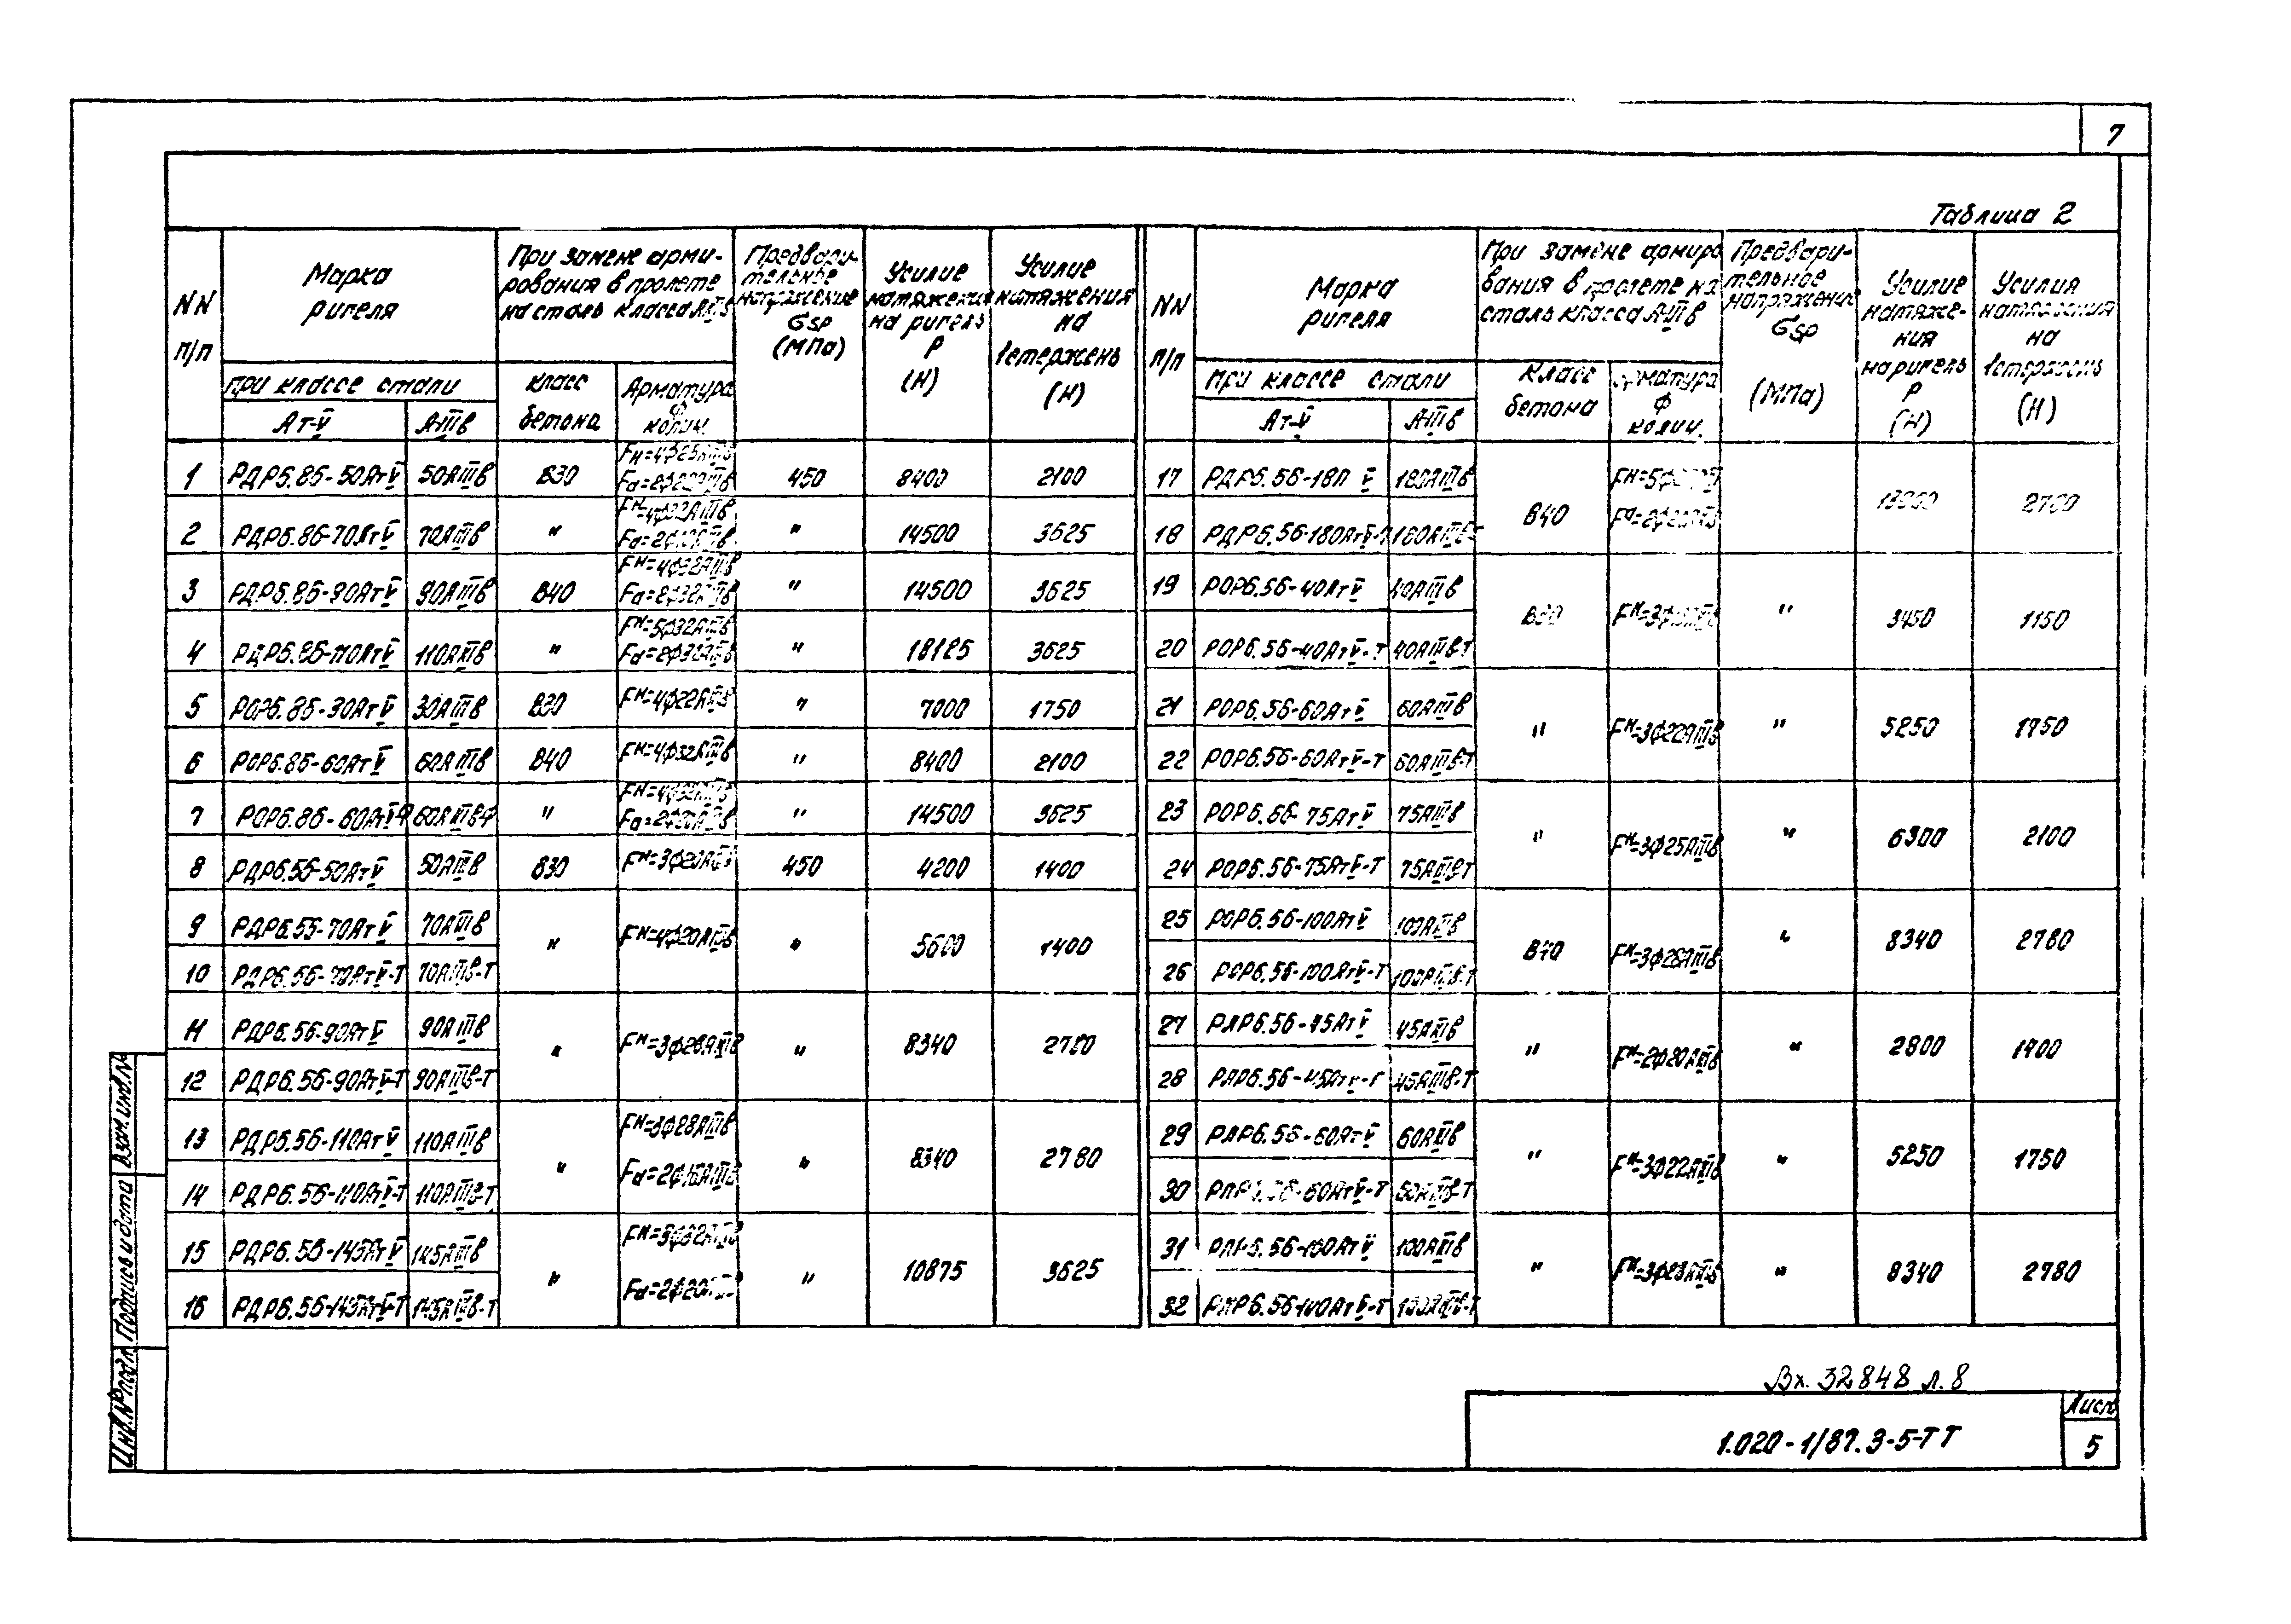 7
Таблица 2
NN п/п
Марка ригеля
При замене арми-
рования в пролете
на сталь класса А-IIIв
Предвари-
тельное
напряжение
σsp
(МПа)
Усилие
натяжения
на ригель
P
(Н)
Усилие
натяжения
на
1 стержень
(Н)
при классе стали
Ат-V
А-IIIв
класс
бетона
Арматура
ф
колич.
1 РДР6.86-50АтV 50АIIIв В30 Fн=4ф25АIIIв 450 8400 2100
2 РДР6.86-70АтV 70АIIIв " Fн=4ф32АIIIв " 14500 3625
3 РДР6.86-90АтV 90АIIIв В40 Fн=4ф32АIIIв Fа=2ф32АIIIв " 14500 3625
4 РДР6.86-110АтV 110АIIIв " Fн=5ф32АIIIв Fа=2ф32АIIIв " 18125 3625
5 РОР6.86-30АтV 30АIIIв В30 Fн=4ф22АIIIв " 7000 1750
6 РОР6.86-60АтV 60АIIIв В40 Fн=4ф32АIIIв " 8400 2100
7 РОР6.86-60АтV 60АIIIв " Fн=4ф32АIIIв " 14500 3625
8 РДР6.56-50АтV 50АIIIв В30 Fн=3ф20АIIIв 450 4200 1400
9 РДР6.56-70АтV 70АIIIв
" Fн=4ф20АIIIв " 5600 1400
10 РДР6.56-70АтV-Т 70АIIIв-Т
11 РДР6.56-90АтV 90АIIIв
" Fн=3ф28АIIIв " 8340 2780
12 РДР6.56-90АтV-Т 90АIIIв-Т
13 РДР6.56-110АтV 110АIIIв Fн=3ф28АIIIв
" Fа=2ф16АIIIв " 8340 2780
14 РДР6.56-110АтV-Т 110АIIIв-Т
15 РДР6.56-145АтV 145АIIIв Fн=3ф32АIIIв
" Fа=2ф20 " 10875 3625
16 РДР6.56-145АтV-Т 145АIIIв-Т
NN п/п
Марка
ригеля
При замене армиро
вания в пролете на
сталь класса А-IIIв
Предвари-
тельное
напряжение
σsp
(МПа)
Усилие
натяже-
ния
на ригель
P
(Н)
Усилия
натяжения
на
1 стержень
(Н)
при классе стали
Ат-V
А-IIIв
Класс
бетона
арматура
ф
колич.
17 РДР6.56-180 V 180АIIIв
В40 2780
18 РДР6.56-180АтV-Т 180АIIIв-
19 РОР6.56-40АтV 40АIIIв
В30 " 3450 1150
20 РОР6.56-40АтV-Т 40АIIIв-Т
21 РОР6.56-60АтV 60АIIIв
" Fн=3ф22АIIIв " 5250 1750
22 РОР6.56-60АтV-Т 60АIIIв-Т
23 РОР6.56-75АтV 75АIIIв
" Fн=3ф25АIIIв " 6300 2100
24 РОР6.56-75АтV-Т 75АIIIв-Т
25 РОР6.56-100АтV 100АIIIв
В40 Fн=3ф28АIIIв " 8340 2780
26 РОР6.56-100АтV-Т 100АIIIв-Т
27 РЛР6.56-45АтV 45АIIIв
" Fн=2ф20АIIIв " 2800 1400
28 РЛР6.56-45АтV-Т 45АIIIв-Т
29 РЛР6.56-60АтV 60АIIIв
" Fн=3ф22АIIIв " 5250 1750
30 РЛР6.56-60АтV-Т 60АIIIв-Т
31 РЛР6.56-100АтV 100АIIIв
" Fн=3ф28АIIIв " 8340 2780
32 РЛР6.56-100АтV-Т 100АIIIв-Т
Инв.№ подл. Подпись и дата Взам.инв.№
Вх. 32848 л.8
1.020-1/87.3-5-ТТ
Лист
5